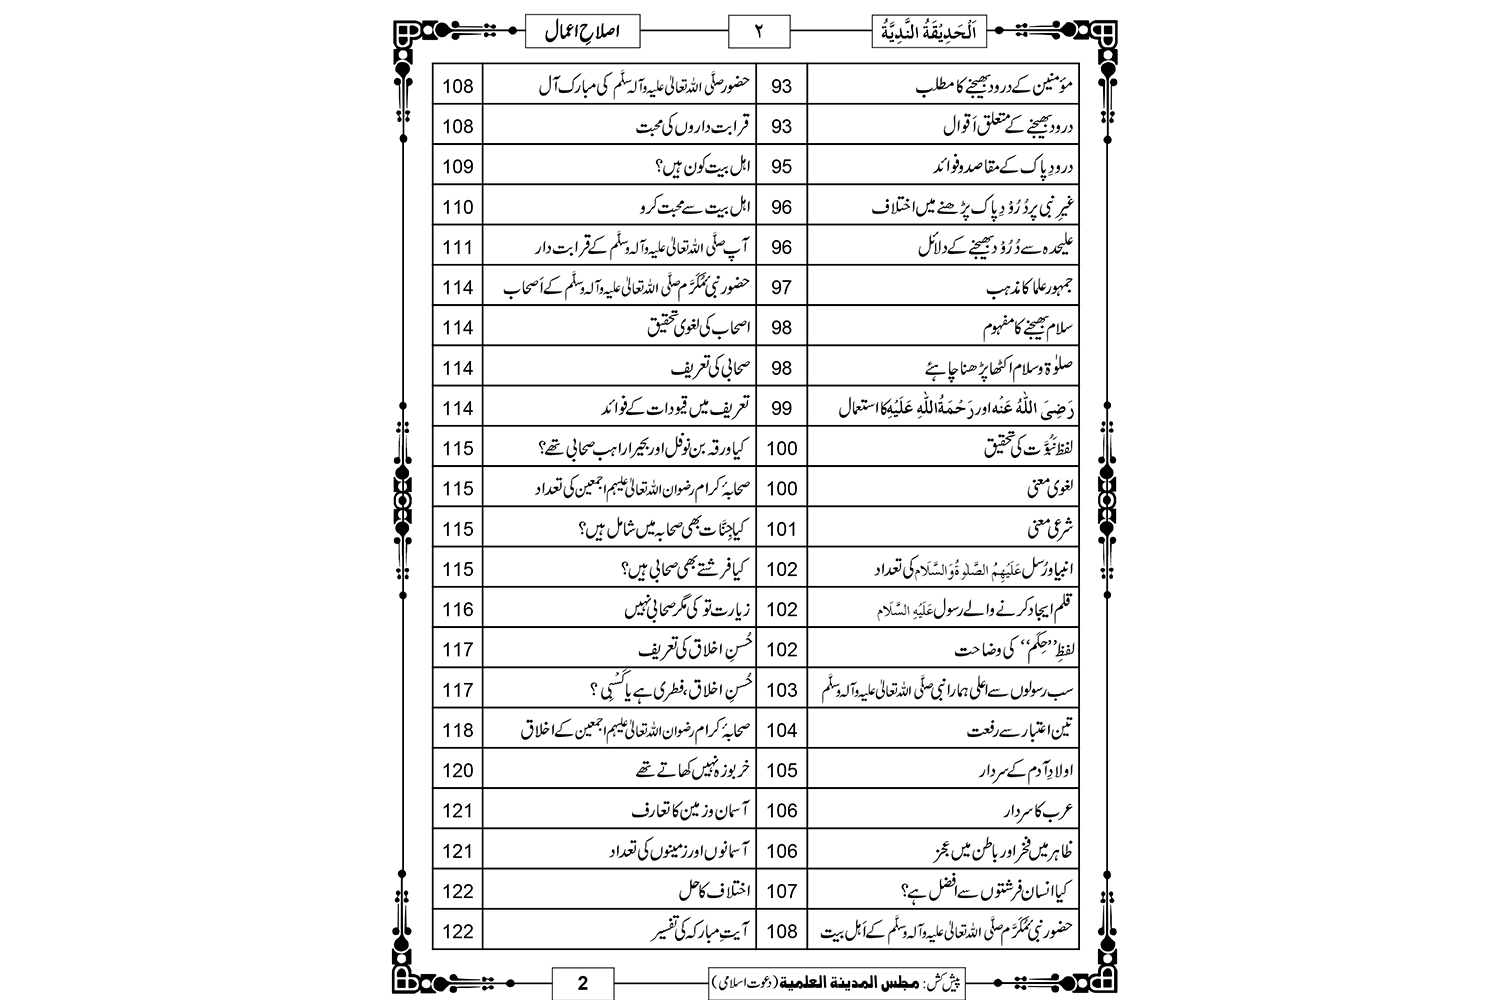 اَلْحَدِیْقَۃُ النَّدِیَّۃُ
۲
اصلاحِ اعمال
مؤمنین کے درود بھیجنے کا مطلب 93
درود بھیجنے کے متعلق اَقوال 93
درودِ پاک کے مقاصد وفوائد 95
غیرِ نبی پر دُرُوْدِ پاک پڑھنے میں اختلاف 96
علیحدہ سے دُرُوْد بھیجنے کے دلائل 96
جمہور علما کا مذہب 97
سلام بھیجنے کا مفہوم 98
صلوٰۃ وسلام اکٹھا پڑھنا چاہئے 98
رَضِیَ اللّٰہُ عَنْہ اور رَحْمَۃُ اللّٰہِ عَلَیْہِ کا استعمال 99
لفظ نَبُوَّت کی تحقیق 100
لغوی معنی 100
شرعی معنی 101
انبیا ورُسل عَلَیْہِمُ الصَّلٰوۃُ وَالسَّلَام کی تعداد 102
قلم ایجاد کرنے والے رسول عَلَیْہِ السَّلَام 102
لفظِ ’’حِکَم‘‘ کی وضاحت 102
سب رسولوں سے اعلی ہمارا نبی صلَّی اللہ تعالیٰ علیہ وآلہ وسلَّم 103
تین اعتبار سے رفعت 104
اولادِ آدم کے سردار 105
عرب کا سردار 106
ظاہر میں فخر اور باطن میں عجز 106
کیا انسان فرشتوں سے افضل ہے؟ 107
حضور نبیٔ مُکَرَّم صلَّی اللہ تعالیٰ علیہ وآلہ وسلَّم کے اَہل بیت 108
حضور صلَّی اللہ تعالیٰ علیہ وآلہ وسلَّم کی مبارک آل 108
قرابت داروں کی محبت 108
اہل بیت کون ہیں؟ 109
اہل بیت سے محبت کرو 110
آپ صلَّی اللہ تعالیٰ علیہ وآلہ وسلَّم کے قرابت دار 111
حضور نبیٔ مُکَرَّم صلَّی اللہ تعالیٰ علیہ وآلہ وسلَّم کے اَصحاب 114
اصحاب کی لغوی تحقیق 114
صحابی کی تعریف 114
تعریف میں قیودات کے فوائد 114
کیا ورقہ بن نوفل اور بحیرا راہب صحابی تھے؟ 115
صحابۂ کرام رضوان اللہ تعالیٰ علیہم اجمعین کی تعداد 115
کیا جِنَّات بھی صحابہ میں شامل ہیں؟ 115
کیا فرشتے بھی صحابی ہیں؟ 115
زیارت تو کی مگر صحابی نہیں 116
حُسنِ اخلاق کی تعریف 117
حُسنِ اخلاق، فطری ہے یا کَسْبِی ؟ 117
صحابۂ کرام رضوان اللہ تعالیٰ علیہم اجمعین کے اخلاق 118
خربوزہ نہیں کھاتے تھے 120
آسمان وزمین کا تعارف 121
آسمانوں اور زمینوں کی تعداد 121
اختلاف کا حل 122
آیتِ مبارکہ کی تفسیر 122
پیش کش: مجلس المدینۃ العلمیۃ (دعوت اسلامی)
2